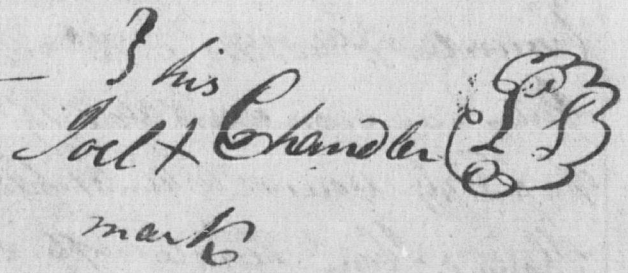 } his
Joel + Chandler L S
mark